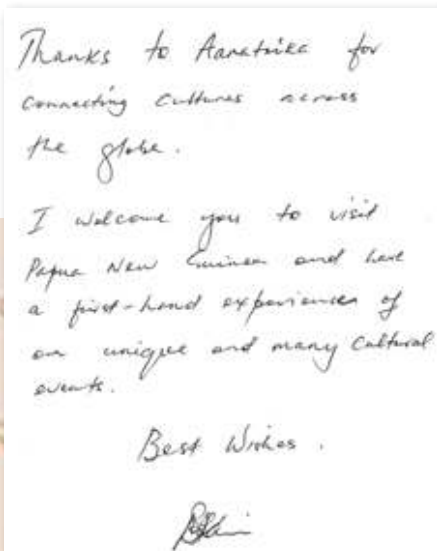 Thanks to Aanatrika for
connecting cultures across
the globe.
I welcome you to visit
Papua New Guinea and have
a first-hand experiences of
our unique and many Cultural
events.
Best Wishes.